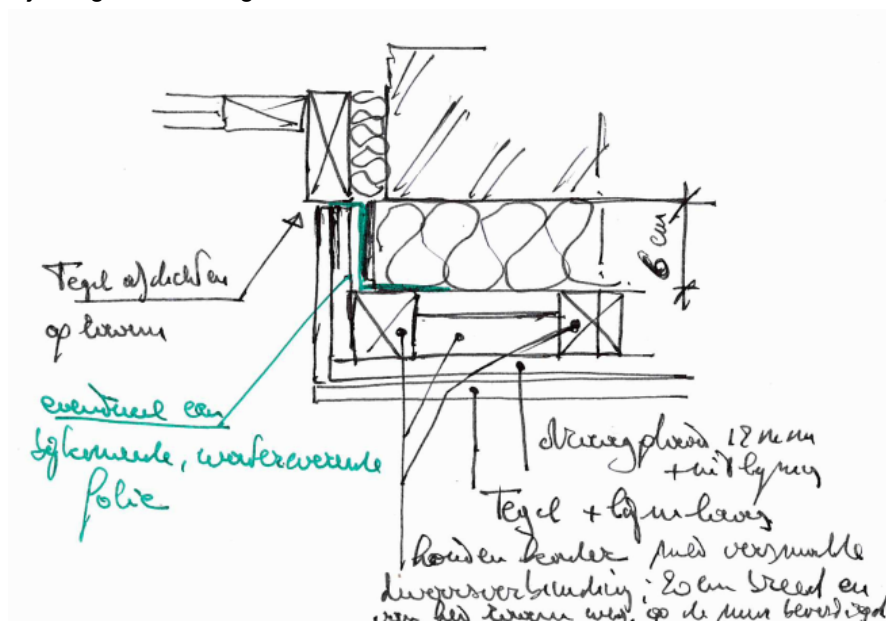 Tegel afdichten
op kozijn
eventueel een
bijkomende, waterwerende
folie
6 cm
12 mm
Tegel + lijm
houten kader met versmalde
dwarsverbinding: 20 cm breed en
van het kozijn weg, op de muur bevestigd